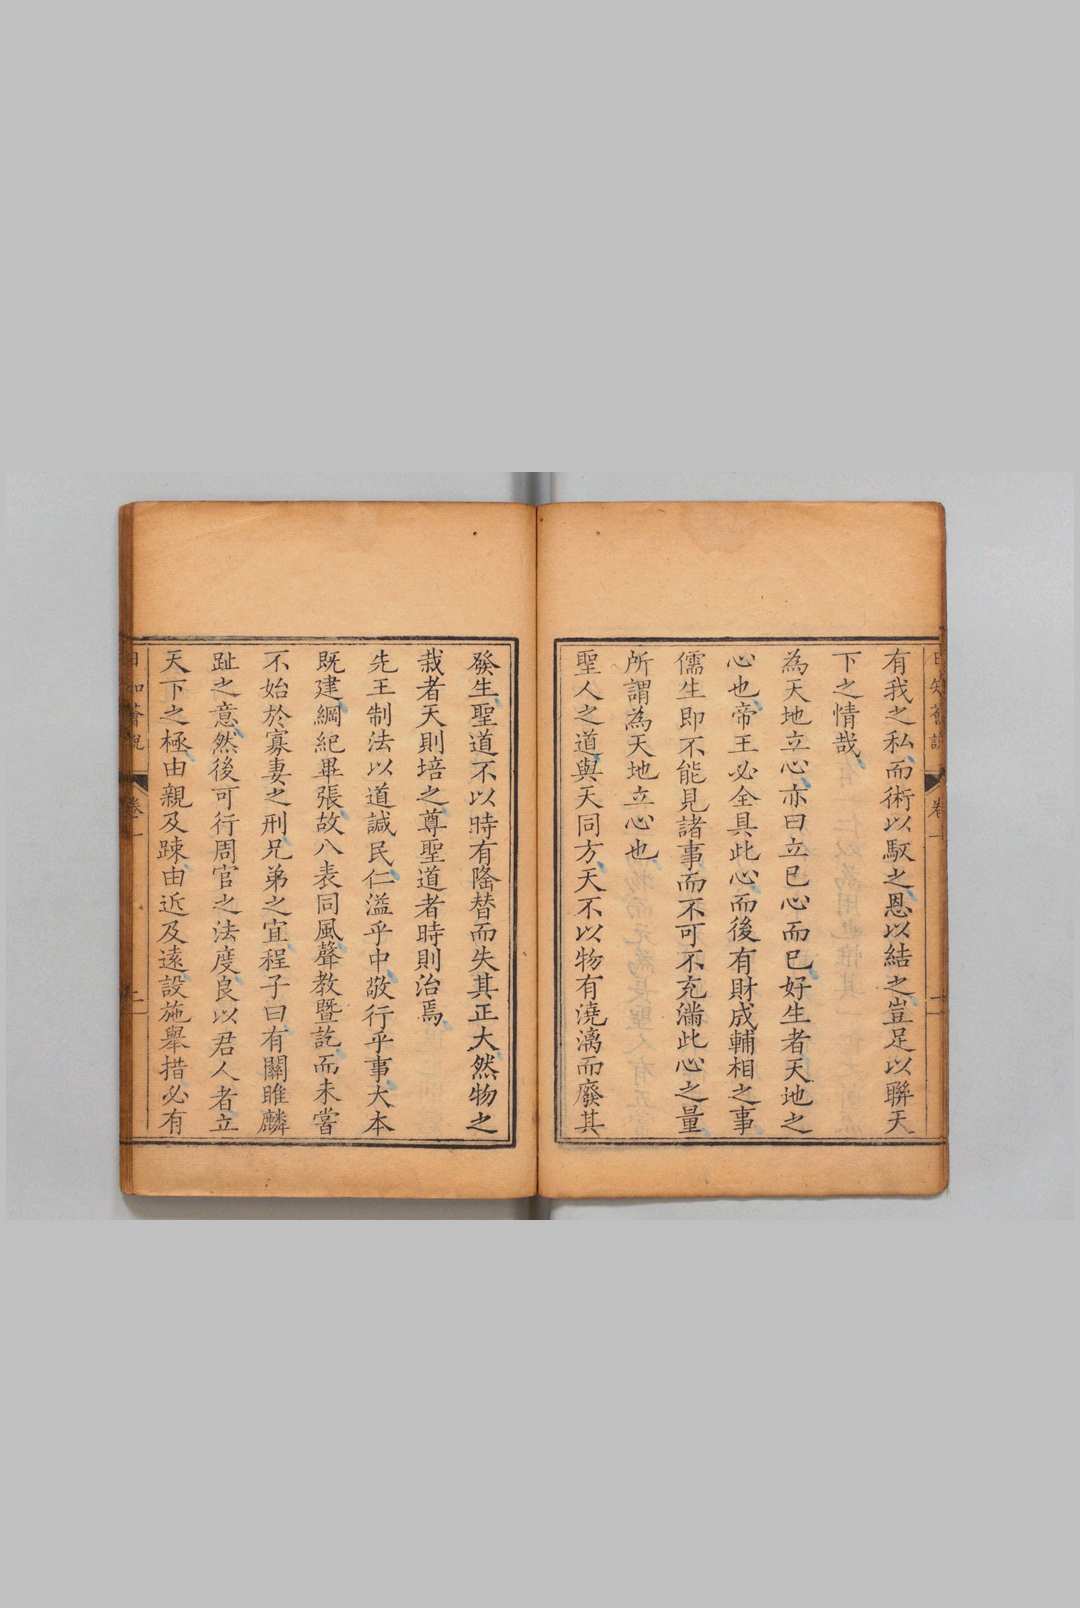 有我之私而術以馭之恩以結之豈足以聯天
下之情哉
為天地立心亦曰立已心而已好生者天地之
心也帝王必全具此心而後有財成輔相之事
儒生即不能見諸事而不可不充滿此心之量
所謂為天地立心也
聖人之道與天同方天不以物有澆漓而廢其
發生聖道不以時有隆替而失其正大然物之
栽者天則培之尊聖道者時則治焉
先王制法以道諴民仁溢乎中敬行乎事大本
既建綱紀畢張故八表同風聲教暨訖而未嘗
不始於寡妻之刑兄弟之宜程子曰有關雎麟
趾之意然後可行周官之法度良以君人者立
天下之極由親及疎由近及遠設施舉措必有
卷一